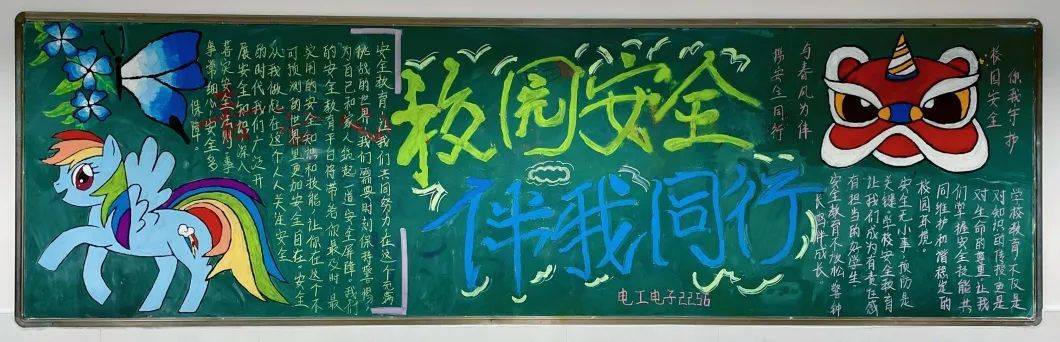 安全教育，让我们共同努力，在这个充满
挑战的世界，我们需要时刻保持警惕，
为自己和他人筑起一道安全屏障。我们
的安全教育平台将带给你最及时、最
实用的安全知识和技能，让你在这个不
可预测的世界里更加安全自在。安全
从我做起，在这个人人关注安全
的时代，我们广泛开
展安全知识，深入
安全法，事
事常细心，安全多
保障！
校园安全
伴我同行
电工电子2256
与春风为伴
携安全同行
你我守护
校园安全
学校教育，不仅是
对知识的传授，更是
对生命的尊重，让我
们掌握安全技能，共
同维护和谐稳定的
校园环境。
安全无小事，预防是
关键，学校安全教育
让我们成为有责任感
有担当的好学生。
安全教育不放松，警钟
长鸣伴成长。